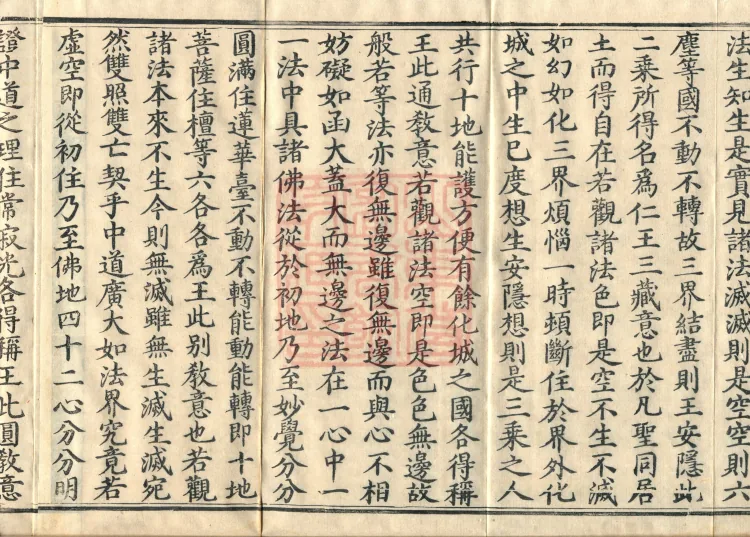 法生知生是實見諸法滅滅則是空空則六
塵等國不動不轉故三界結盡則王安隱此
二乘所得名為仁王三藏意也於凡聖同居
土而得自在若觀諸法色即是空不生不滅
如幻如化三界煩惱一時頓斷住於界外化
城之中生已度想生安隱想則是三乘之人
共行十地能護方便有餘化城之國各得稱
王此通教意若觀諸法空即是色色無邊故
般若等法亦復無邊雖復無邊而與心不相
妨礙如函大蓋大而無邊之法在一心中一
一法中具諸佛法從於初地乃至妙覺分分
圓滿住蓮華臺不動不轉能動能轉即十地
菩薩住檀等六各各為王此別教意也若觀
諸法本來不生今則無滅雖無生滅生滅宛
然雙照雙亡契乎中道廣大如法界究竟若
虛空即從初住乃至佛地四十二心分分明
證中道之理住常寂光各得稱王此圓教意